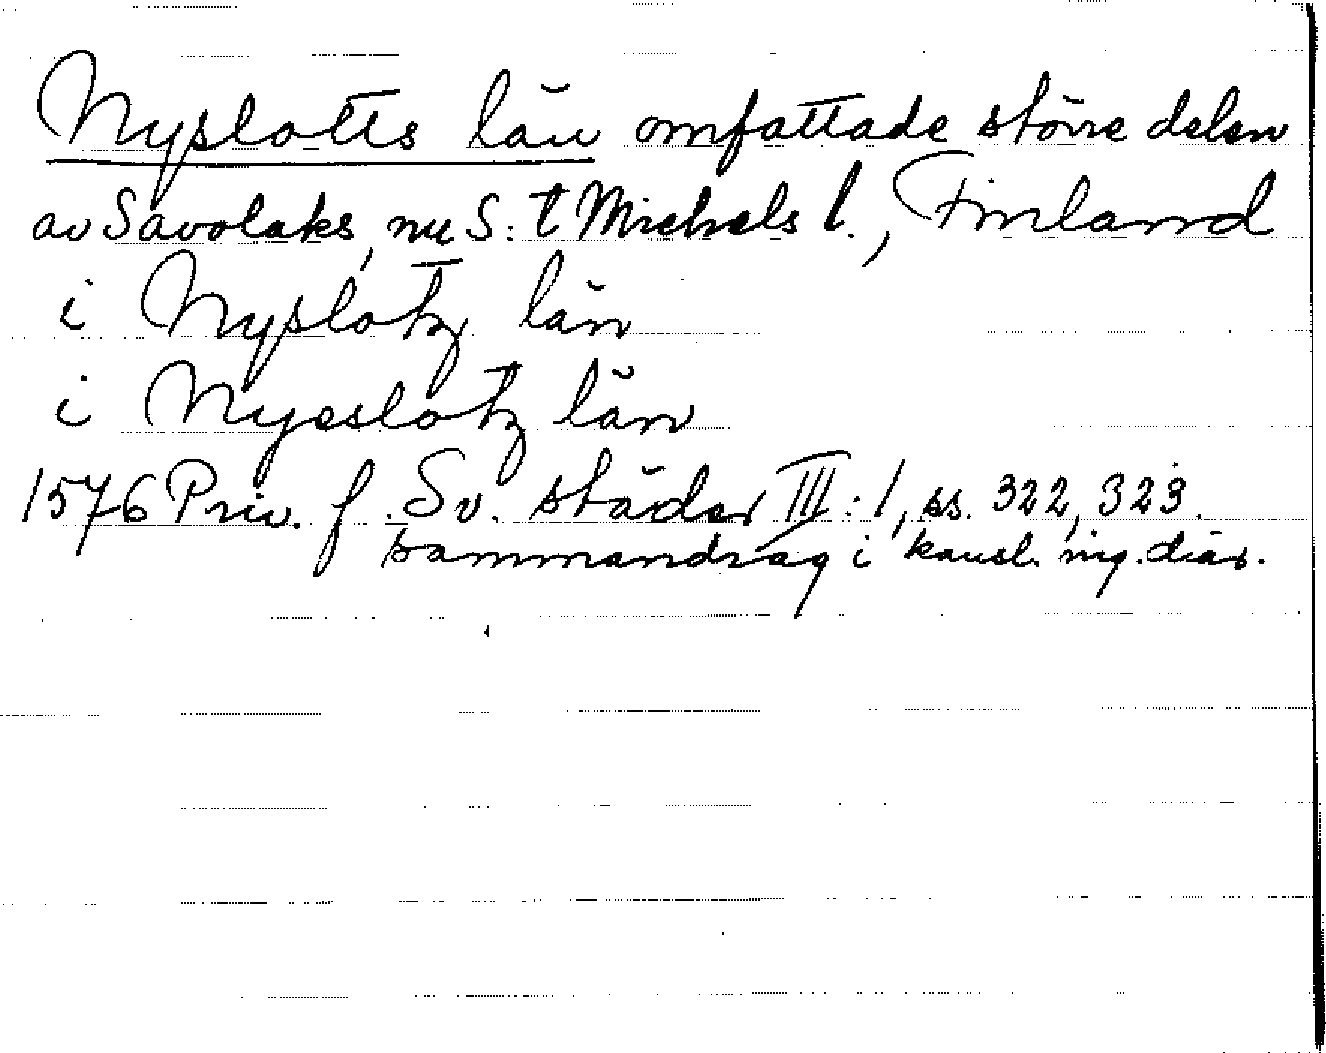 Nyslotts län omfattade större delen
av Savolaks, nu S:t Michels l., Finland
i Nyslotz län
i Nyeslotz län
1576 Priv. f. Sv. städer III:1, ss. 322, 323.
sammandrag i kansl. ing. diar.